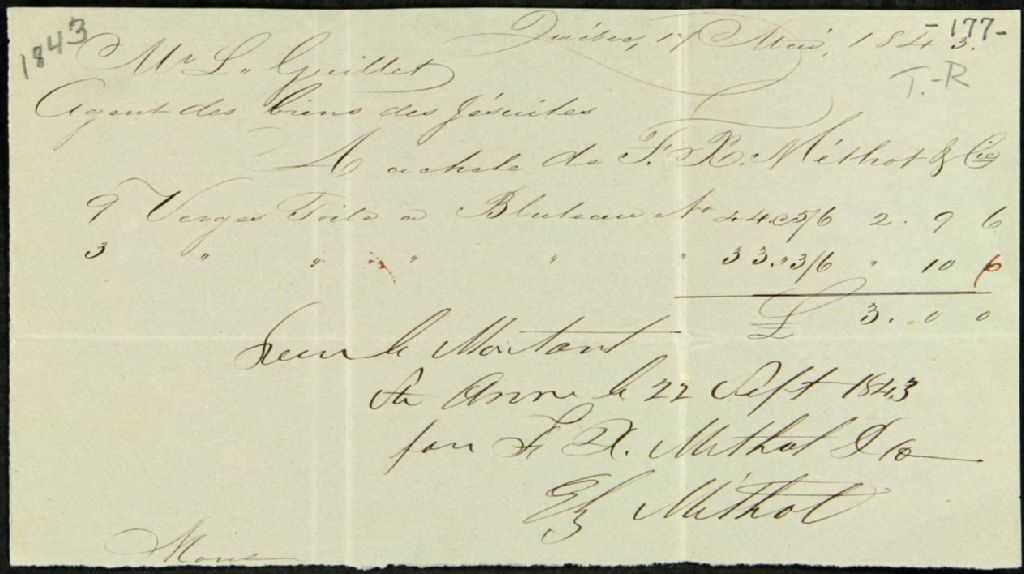 1843
-177-
T.-R
Québec, 17 Mai, 1843.
Mr L. Guillet
Agent des biens des Jésuites
A acheté de F. X. Méthot & Cie
9 Verges Toile a Bluteau No 44 @ 5/6 2. 9 6
3 " " " " " 33 " 3/6 " 10 6
£ 3. 0 0
Recu le Montant
Ste Anne le 22 Sept 1843
pour F X. Méthot & Co
Méthot